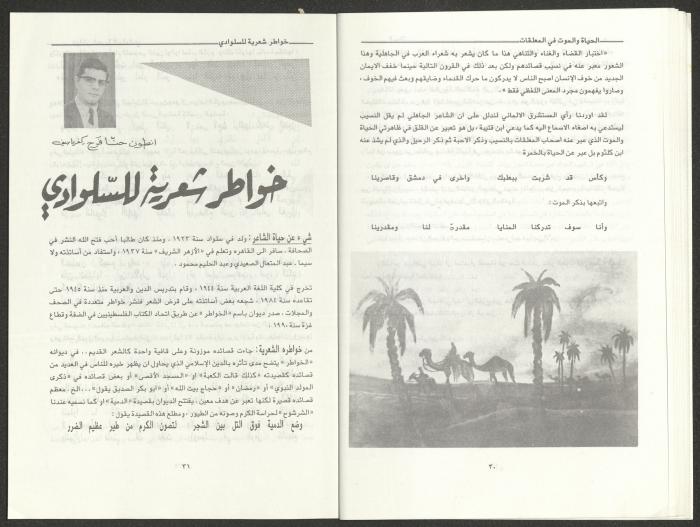 الحياة والموت في المعلقات
«اختبار القضاء والفناء والتناهي هذا ما كان يشعر به شعراء العرب في الجاهلية وهذا
الشعور معبر عنه في نسيب قصائدهم ولكن بعد ذلك في القرون التالية حينما خفف الايمان
الجديد من خوف الإنسان اصبح الناس لا يدركون ما حرك القدماء وضايقهم وبعث فيهم الخوف،
وصاروا يفهمون مجرد المعنى اللفظي فقط».
لقد اوردنا رأي المستشرق الالماني لندلل على ان الشاعر الجاهلي لم يقل النسيب
ليستدعي به اصغاء الاسماع اليه كما يدعي ابن قتيبة، بل هو تعبير عن القلق في ظاهرتي الحياة
والموت الذي عبر عنه أصحاب المعلقات بالنسيب وذكر الاحبة ثم ذكر الرحيل والذي لم يشذ عنه
ابن كلثوم بل عبر عن الحياة بالخمرة
وكأس قد شربت ببعلبك واخرى في دمشق وقاصرينا
واتبعها بذكر الموت:
وأنا سوف تدركنا المنايا مقدرة لنا ومقدرينا
٣٠
خواطر شعرية للسلوادي
انطون حنا فرج
خواطر شعرية للسّلوادي
شيء عن حياة الشاعر: ولد في سلواد سنة ١٩٢٣، ومنذ كان طالبا أحب فتح الله النشر في
الصحافة. سافر الى القاهره وتعلم في «الأزهر الشريف» سنة ١٩٣٧، واستفاد من أساتذته ولا
سيما، عبد المتعال الصعيدي وعبد الحليم محمود.
تخرج في كلية اللغة العربية سنة ١٩٤٤، وقام بتدريس الدين والعربية منذ سنة ١٩٤٥ حتى
تقاعده سنة ١٩٨٤، شجعه بعض أساتذته على قرض الشعر فنشر خواطر متعددة في الصحف
والمجلات، صدر ديوان باسم «الخواطر» عن طريق اتحاد الكتاب الفلسطينيين في الضفة وقطاع
غزة سنة ١٩٩٠.
من خواطره الشعرية: جاءت قصائده موزونة وعلى قافية واحدة كالشعر القديم.. في ديوانه
«الخواطر» يتضح مدى تأثره بالدين الإسلامي الذي يحاول ان يظهر خيره للناس في العديد من
قصائده كقصيدته «كذلك قالت الكعبة» او «المسجد الأقصى» أو بعض قصائده في «ذكرى
المولد النبوي» أو «رمضان» أو «حجاج بيت الله» أو «ابو بكر الصديق يقول»...الخ. معظم
قصائده قصيرة لكنها تعبر عن هدف معين، يفتتح الديوان بقصيدة «الدمية» او كما نسميه عندنا
«الشرشوح» لحراسة الكرم وصونه من الطيور. ومطلع هذه القصيدة يقول:
وضع الدمية فوق التل بين الشجر لتصون الكرم من طير عظيم الضرر
٣١